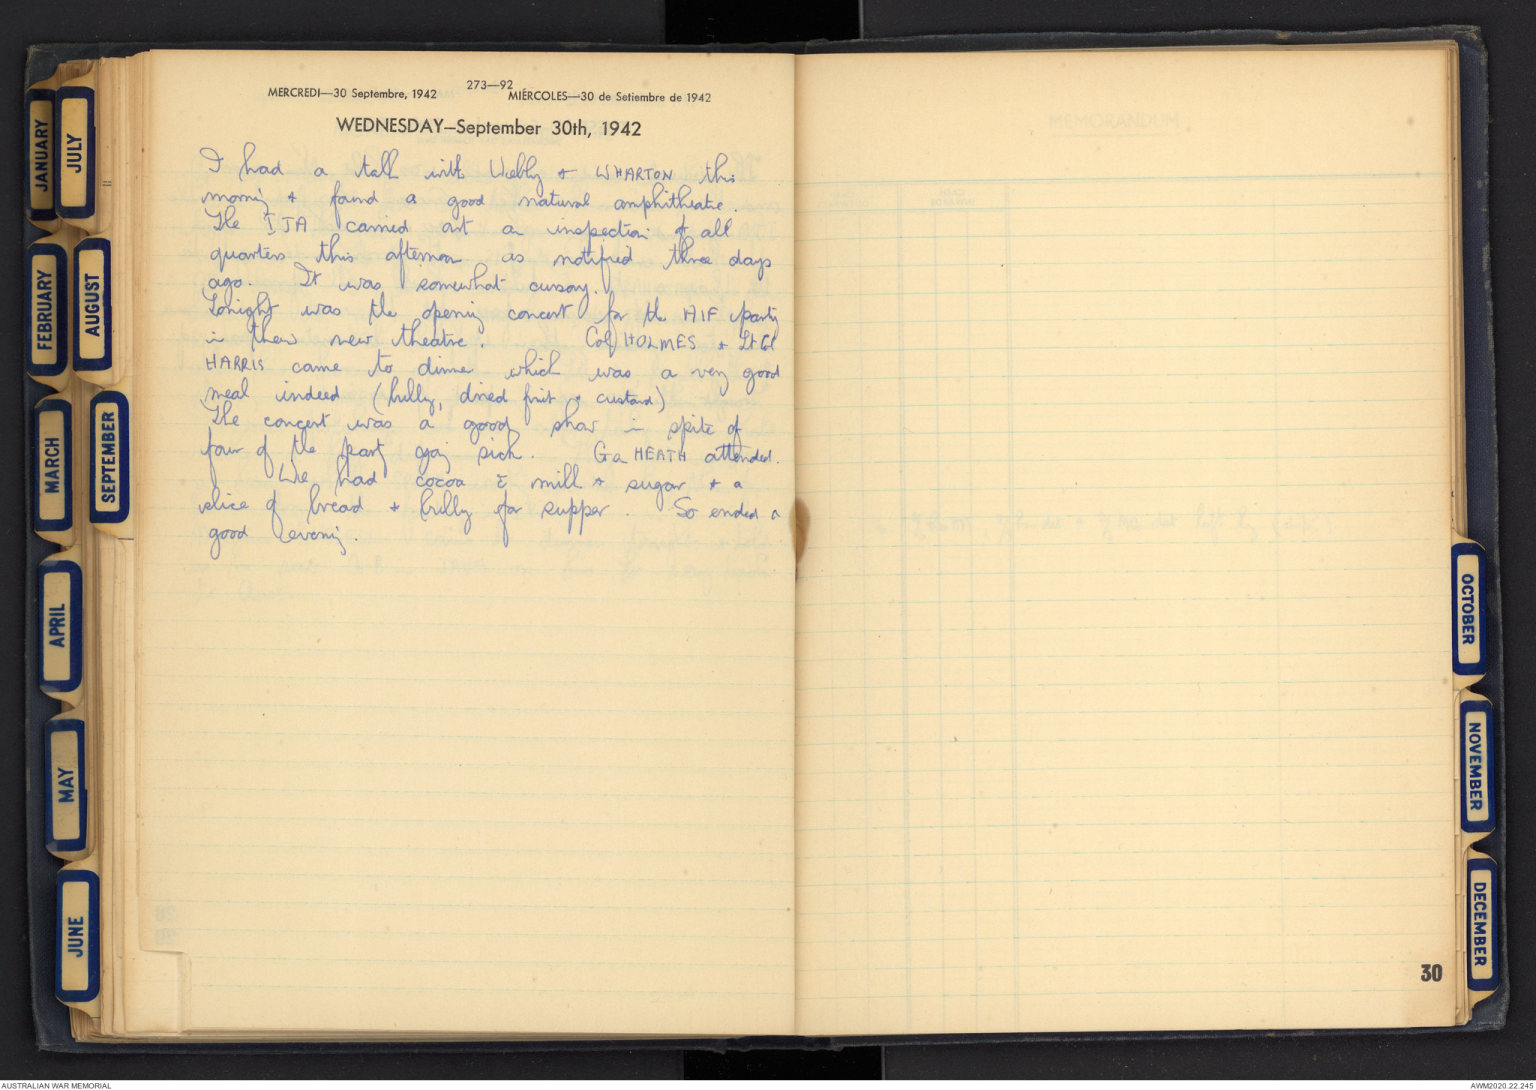 273—92
MERCREDI—30 Septembre, 1942 MIÉRCOLES—30 de Setiembre de 1942
WEDNESDAY—September 30th, 1942
I had a talk with Webby + WHARTON this
morning + found a good natural amphitheatre.
The IJA carried out an inspection of all
quarters this afternoon as notified three days
ago. It was somewhat cursory.
Tonight was the opening concert for the AIF party
in their new theatre. Col HOLMES + Lt Col
HARRIS came to dinner which was a very good
meal indeed (bully, dried fruit + custard)
The concert was a good show in spite of
four of the party going sick. Gen HEATH attended.
We had cocoa & milk + sugar + a
slice of bread + bully for supper. So ended a
good evening.
JANUARY
FEBRUARY
MARCH
APRIL
MAY
JUNE
JULY
AUGUST
SEPTEMBER
MEMORANDUM
OCTOBER
NOVEMBER
DECEMBER
30
AUSTRALIAN WAR MEMORIAL
AWM2020.22.245